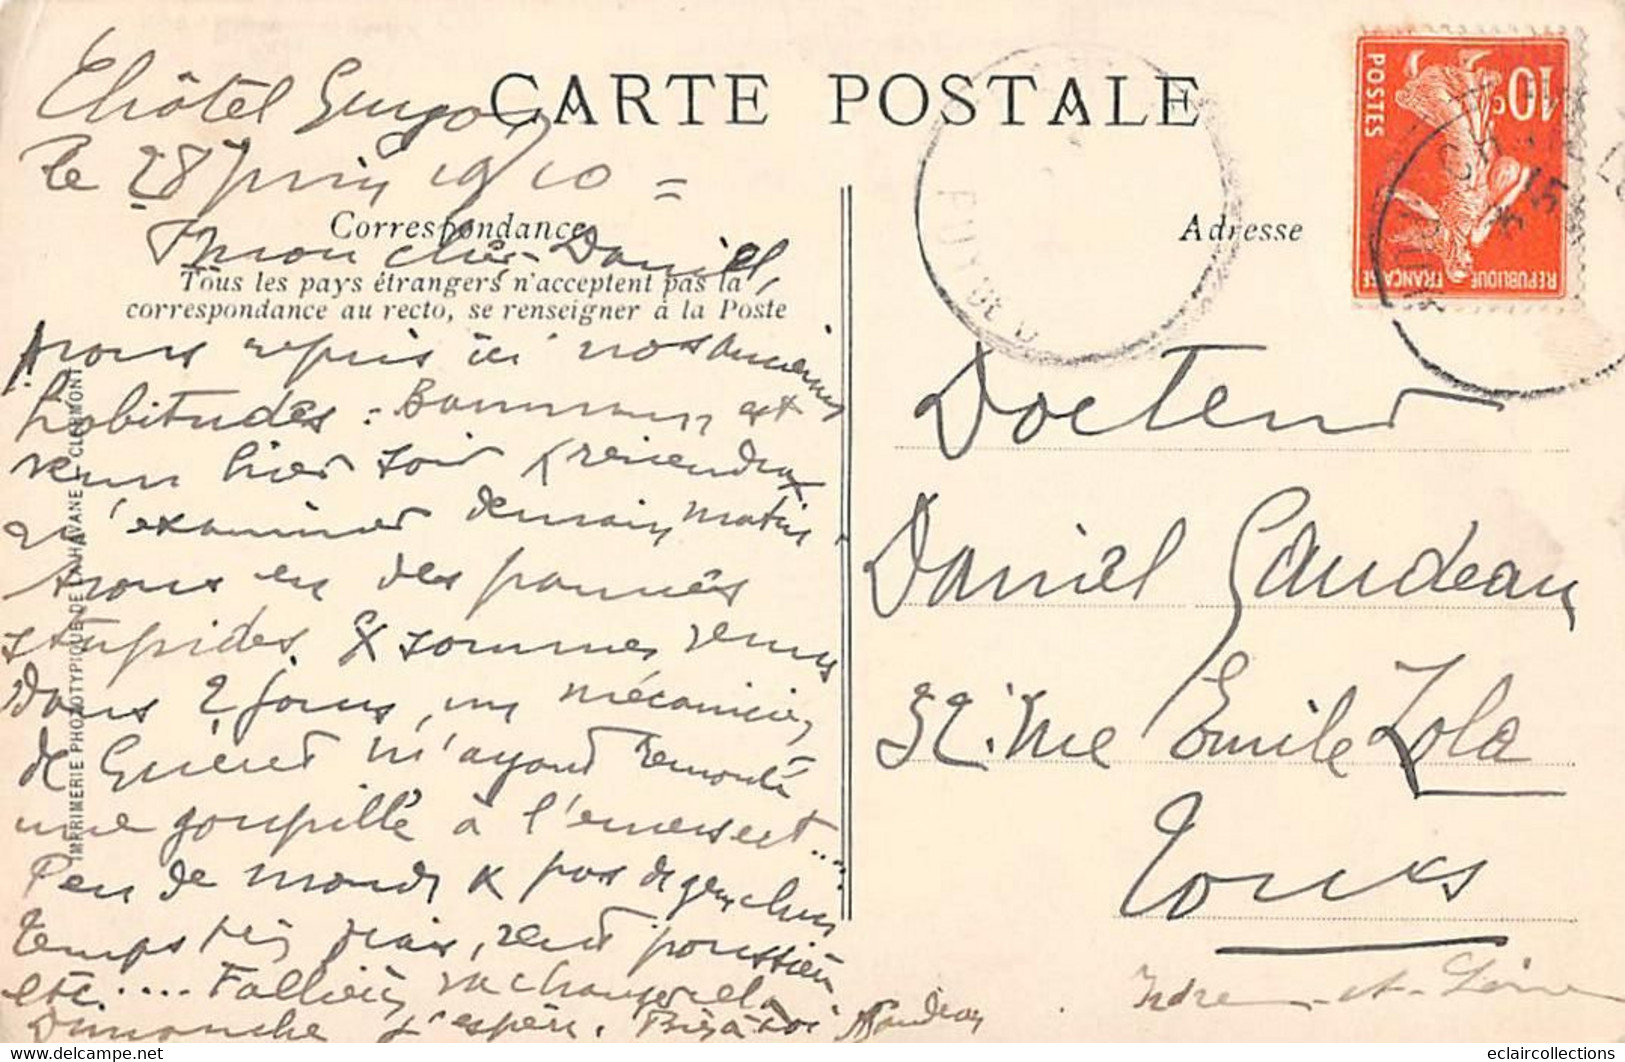 CARTE POSTALE
Châtel Guyon
le 28 juin 1910 =
Correspondance
Mon cher Daniel,
Tous les pays étrangers n'acceptent pas la
correspondance au recto, se renseigner à la Poste
Avons repris ici nos anciennes
habitudes : est
venu hier soir & reviendra
m'examiner demain matin.
Avons eu des pannes
stupides & sommes venus
dans 2 jours, un mécanicien
de Guéret m'ayant remonté
une goupille à l'envers et....
Peu de monde & pas de gens chics
temps très frais, vent poussière
etc.... Fallières va changer cela
Dimanche j'espère. Bien à toi Gaudeau
IMPRIMERIE PHOTOTYPIQUE DE LAHAVANE, CLERMONT
Adresse
10c
POSTES
REPUBLIQUE FRANÇAISE
PUY DE D
Docteur
Daniel Gaudeau
32. rue Emile Zola
Tours
Indre-et-Loire
eclaircollections